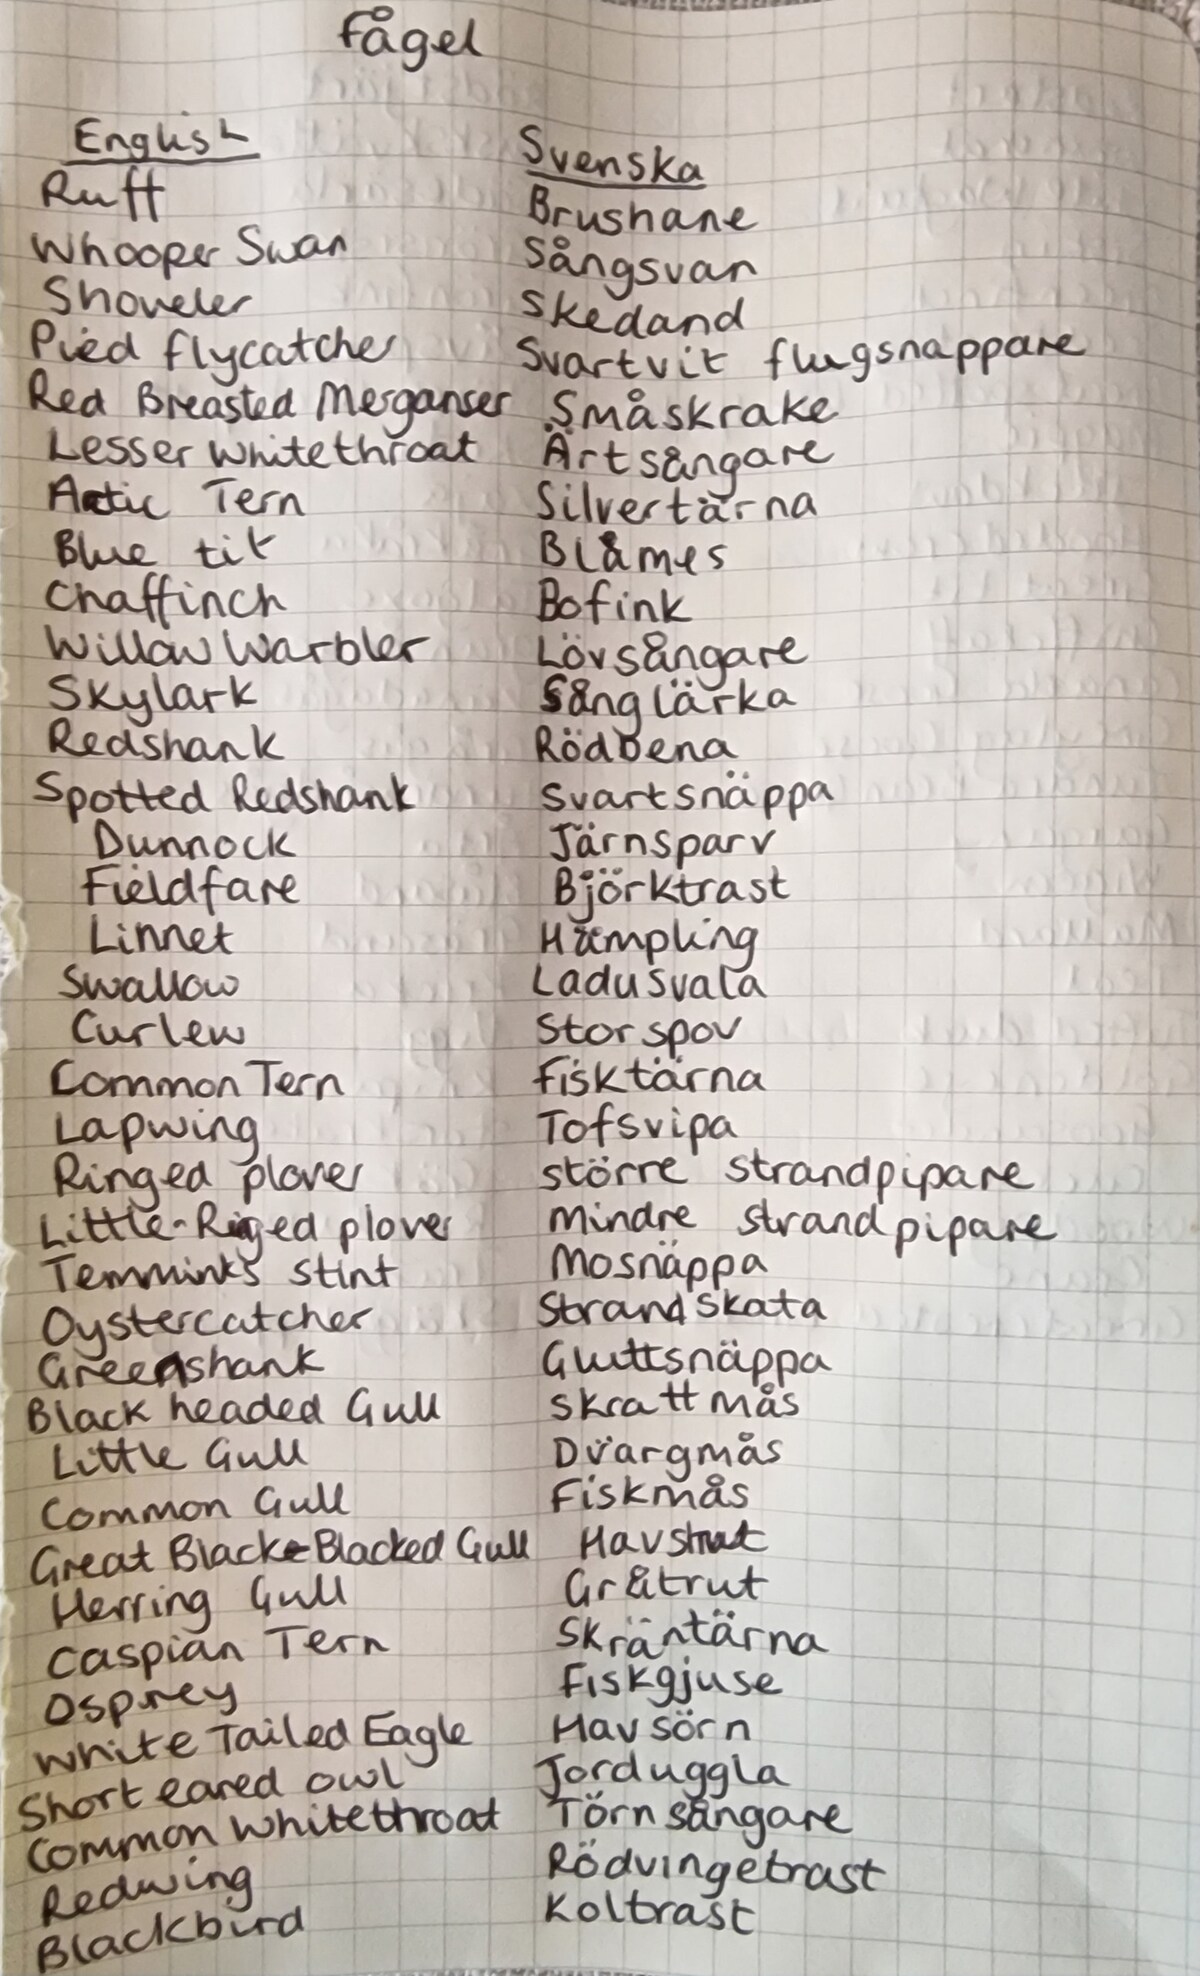 Fågel
English Svenska
Ruff Brushane
Whooper Swan Sångsvan
Shoveler Skedand
Pied flycatcher Svartvit flugsnappare
Red Breasted Merganser Småskrake
Lesser Whitethroat Ärtsångare
Actic Tern Silvertärna
Blue tit Blåmes
Chaffinch Bofink
Willow Warbler Lövsångare
Skylark Sånglärka
Redshank Rödbena
Spotted Redshank Svartsnäppa
Dunnock Järnsparv
Fieldfare Björktrast
Linnet Hämpling
Swallow Ladusvala
Curlew Storspov
Common Tern Fisktärna
Lapwing Tofsvipa
Ringed plover större strandpipare
Little-Ringed plover Mindre strandpipare
Temminks stint Mosnäppa
Oystercatcher Strandskata
Greenshank Gluttsnäppa
Black headed Gull Skrattmås
Little Gull Dvärgmås
Common Gull Fiskmås
Great Black-Blacked Gull Havstrut
Herring Gull Gråtrut
Caspian Tern Skräntärna
Osprey Fiskgjuse
White Tailed Eagle Havsörn
Short eared owl Jorduggla
Common Whitethroat Törnsångare
Redwing Rödvingetrast
Blackbird Koltrast